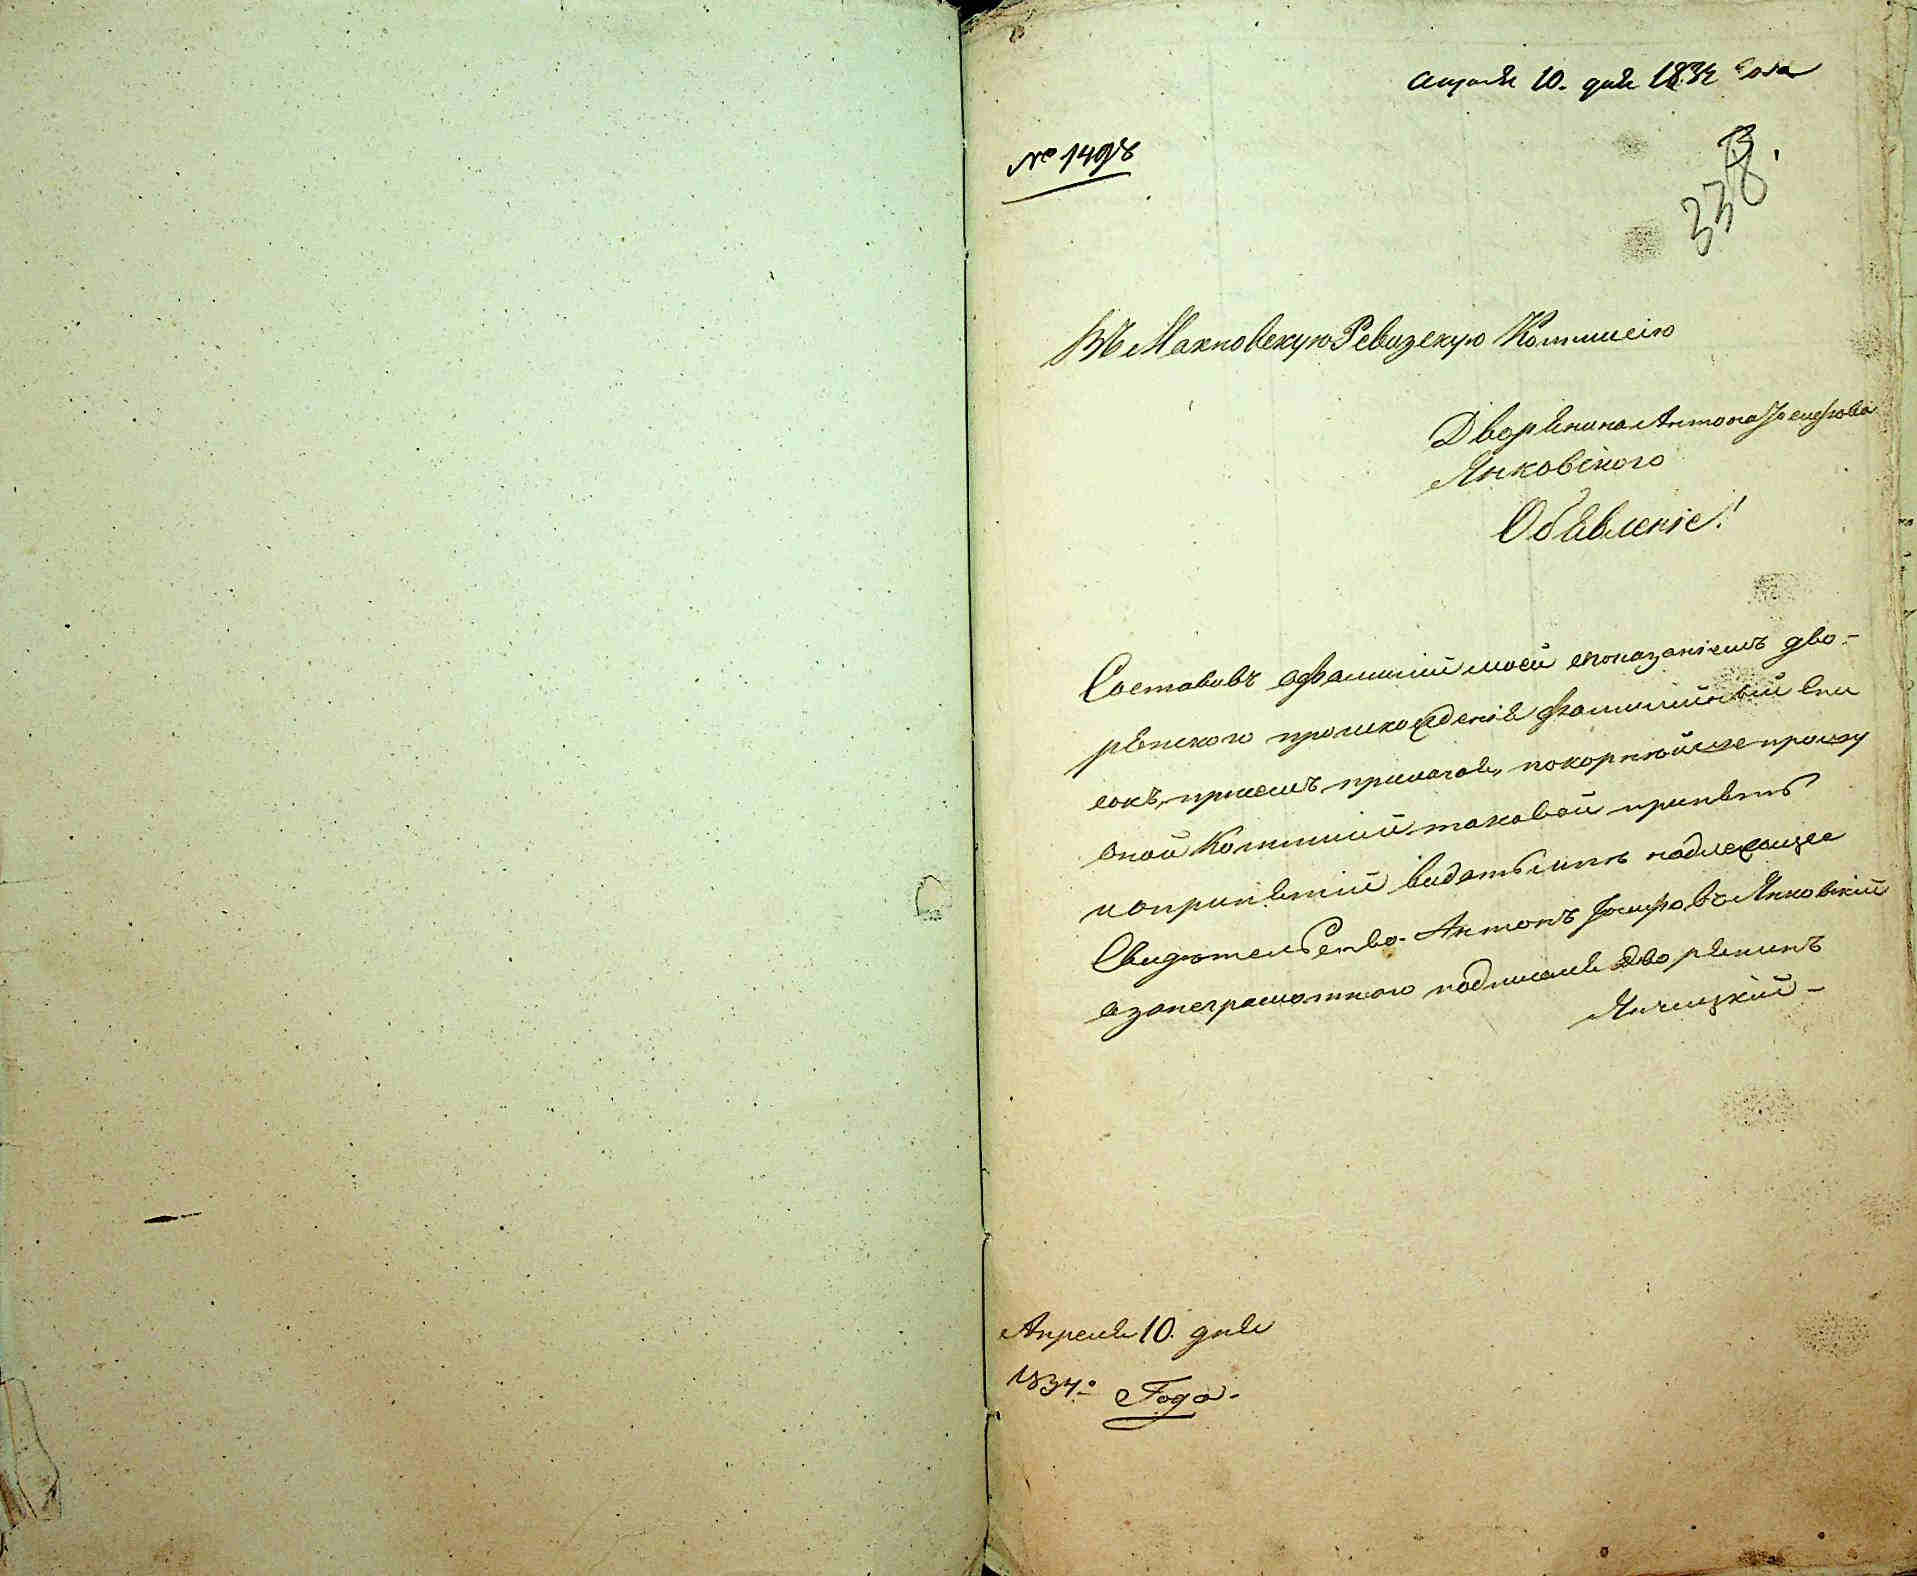 Апреля 10. дня 1834 Года
№ 1498
3.
338
Въ Махновскую Ревизскую Коммисію
Дворянина Антона Іосифова
Янковского
Обявленіе!
Составивъ офамиліи моей споказаніемъ дво-
рянского происхожденія фамилійный спи
сокъ, присемъ прилагая, покорнѣйше прошу
оной Коммисіи таковой принять
и опринятіи видать мнѣ надлежащее
Свидѣтельство. Антонъ Іосифовъ Янковскій
а занеграмотного подписался дворянинъ
Апреля 10. дня
1834.º Года.